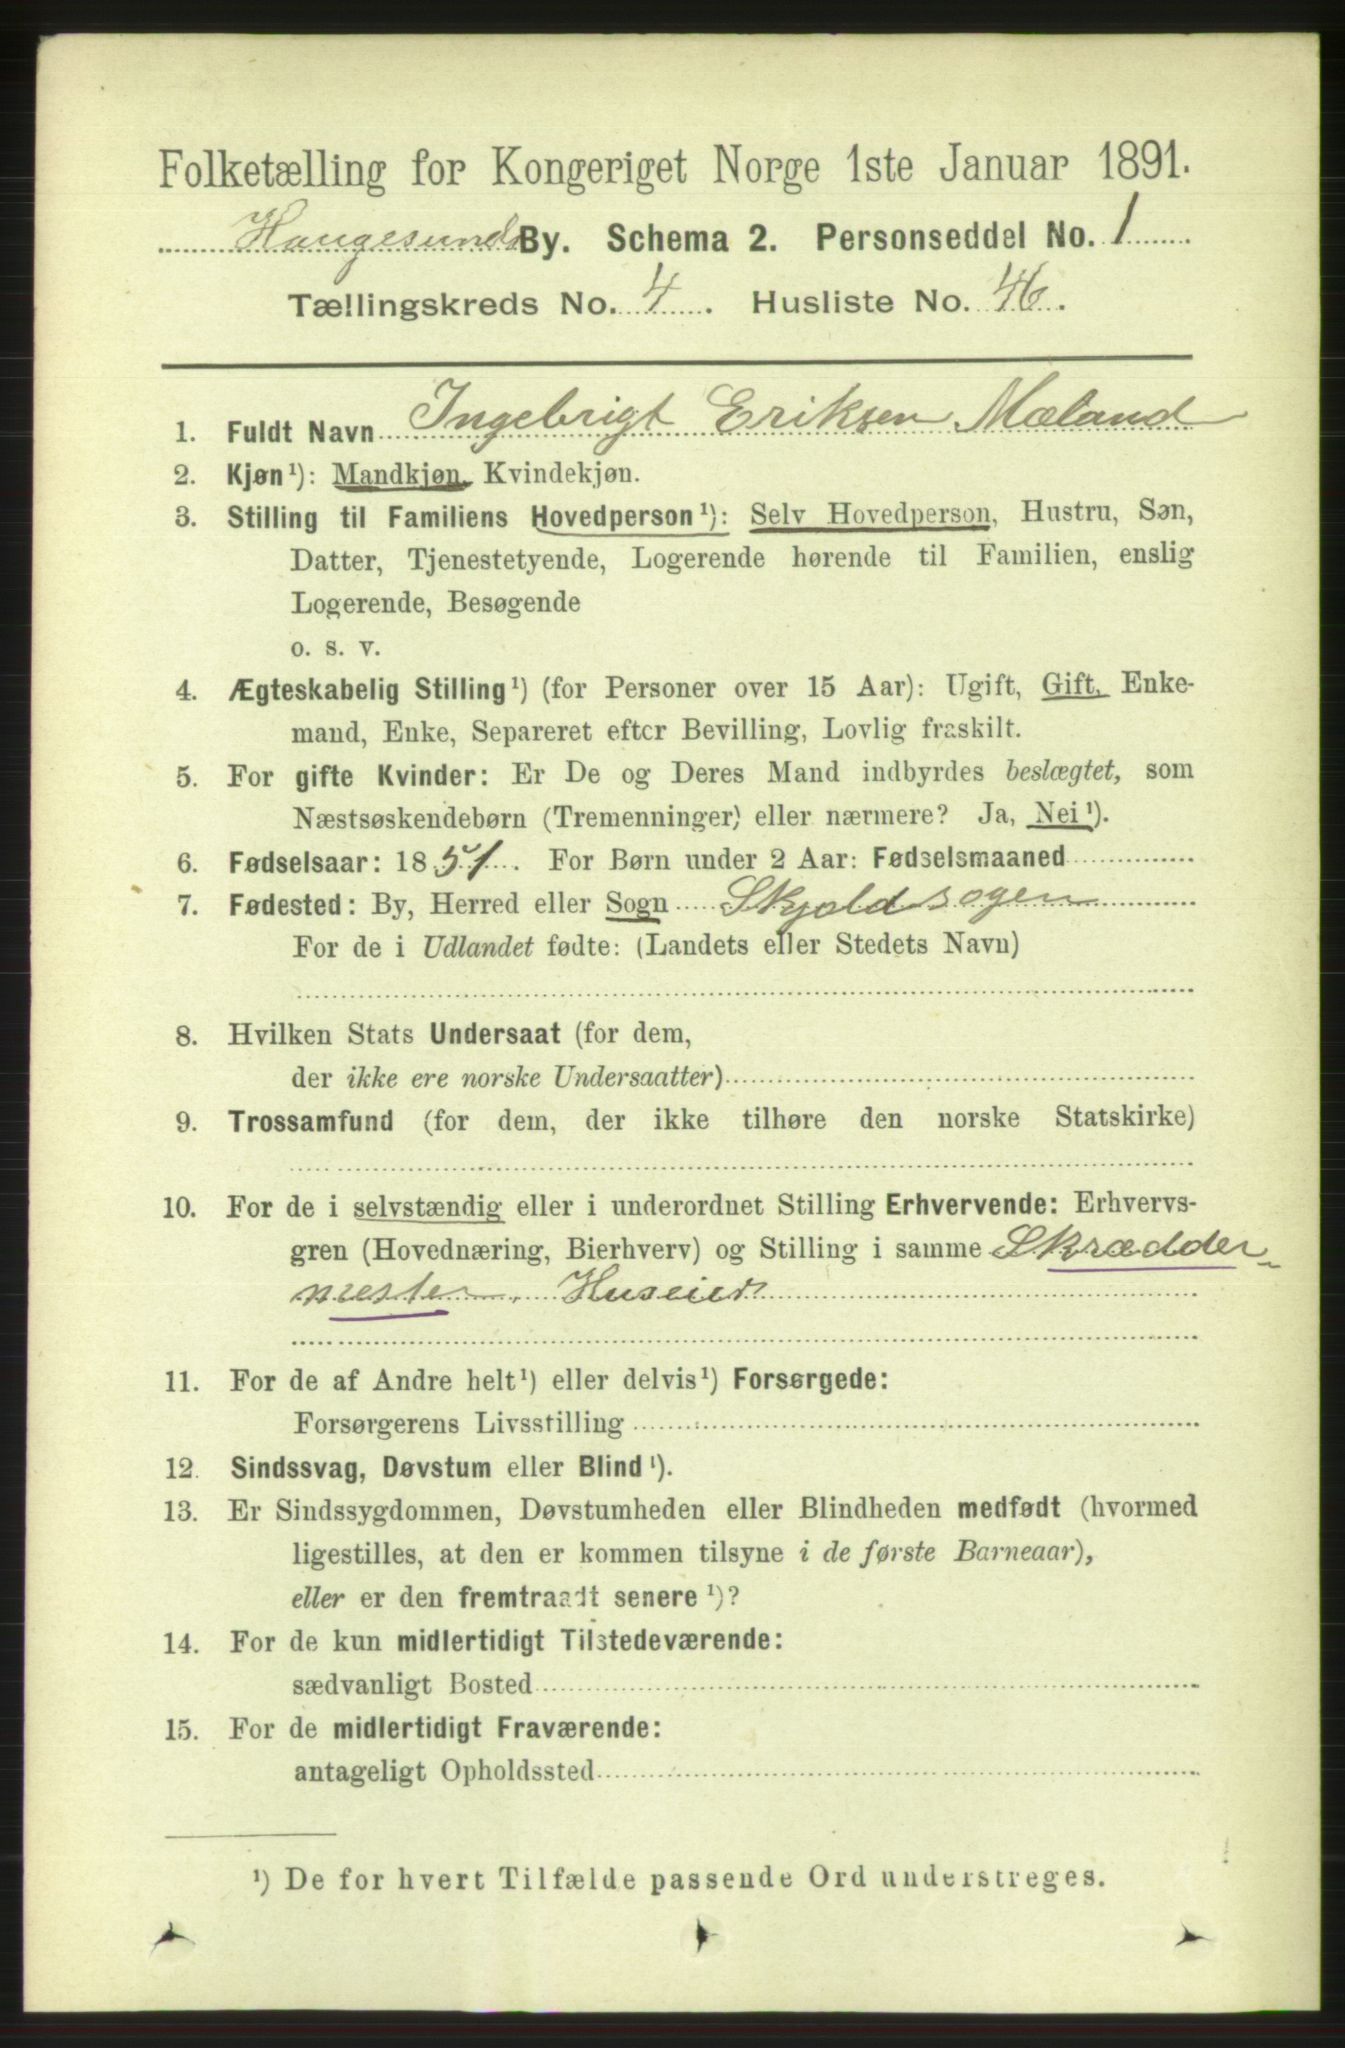 Folketælling for Kongeriget Norge 1ste Januar 1891.
Haugesunds By. Schema 2. Personseddel No. 1
Tællingskreds No. 4. Husliste No. 46.
1. Fuldt Navn Ingebrigt Eriksen Mæland
2. Kjøn¹): Mandkjøn, Kvindekjøn.
3. Stilling til Familiens Hovedperson¹): Selv Hovedperson, Hustru, Søn,
Datter, Tjenestetyende, Logerende hørende til Familien, enslig
Logerende, Besøgende
o. s. v.
4. Ægteskabelig Stilling¹) (for Personer over 15 Aar): Ugift, Gift, Enke-
mand, Enke, Separeret efter Bevilling, Lovlig fraskilt.
5. For gifte Kvinder: Er De og Deres Mand indbyrdes beslægtet, som
Næstsøskendebørn (Tremenninger) eller nærmere? Ja, Nei¹).
6. Fødselsaar: 1851. For Børn under 2 Aar: Fødselsmaaned
7. Fødested: By, Herred eller Sogn Skjoldsogen
For de i Udlandet fødte: (Landets eller Stedets Navn)
8. Hvilken Stats Undersaat (for dem,
der ikke ere norske Undersaatter)
9. Trossamfund (for dem, der ikke tilhøre den norske Statskirke)
10. For de i selvstændig eller i underordnet Stilling Erhvervende: Erhvervs-
gren (Hovednæring, Bierhverv) og Stilling i samme Skrædder-
mester. Huseier
11. For de af Andre helt¹) eller delvis¹) Forsørgede:
Forsørgerens Livsstilling
12. Sindssvag, Døvstum eller Blind¹).
13. Er Sindssygdommen, Døvstumheden eller Blindheden medfødt (hvormed
ligestilles, at den er kommen tilsyne i de første Barneaar),
eller er den fremtraadt senere¹)?
14. For de kun midlertidigt Tilstedeværende:
sædvanligt Bosted
15. For de midlertidigt Fraværende:
antageligt Opholdssted
¹) De for hvert Tilfælde passende Ord understreges.